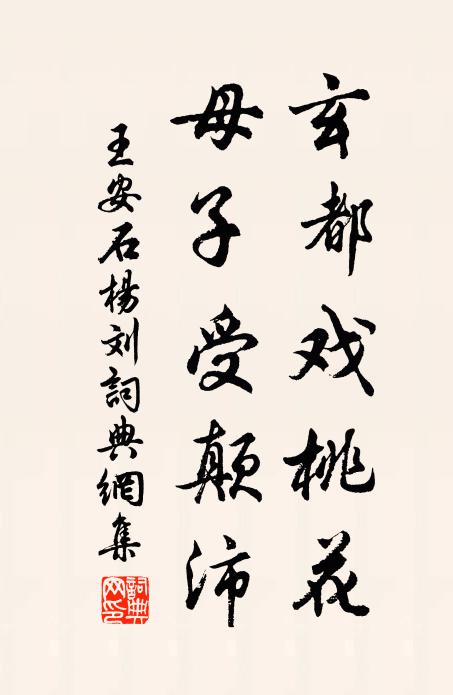 玄都戏桃花
母子受颠沛
王安石楊刘詞典網集
詞典
网印